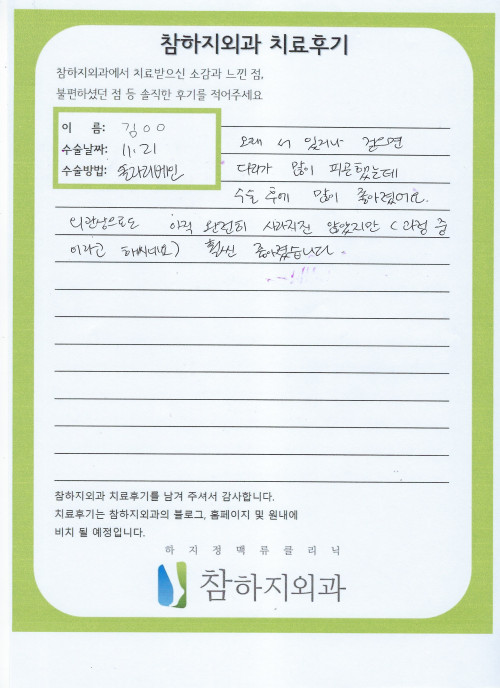 참하지외과 치료후기
참하지외과에서 치료받으신 소감과 느낀 점,
불편하셨던 점 등 솔직한 후기를 적어주세요
이 름: 김OO
수술날짜: 11.21
수술방법: 솔라리베인
오래 서 있거나 걸으면
다리가 많이 피곤했는데
수술 후에 많이 좋아졌어요.
외관상으로도 아직 완전히 사라지진 않았지만 (과정 중
이라고 하시네요) 훨씬 좋아졌습니다.
참하지외과 치료후기를 남겨 주셔서 감사합니다.
치료후기는 참하지외과의 블로그, 홈페이지 및 원내에
비치 될 예정입니다.
하지정맥류클리닉
참하지외과